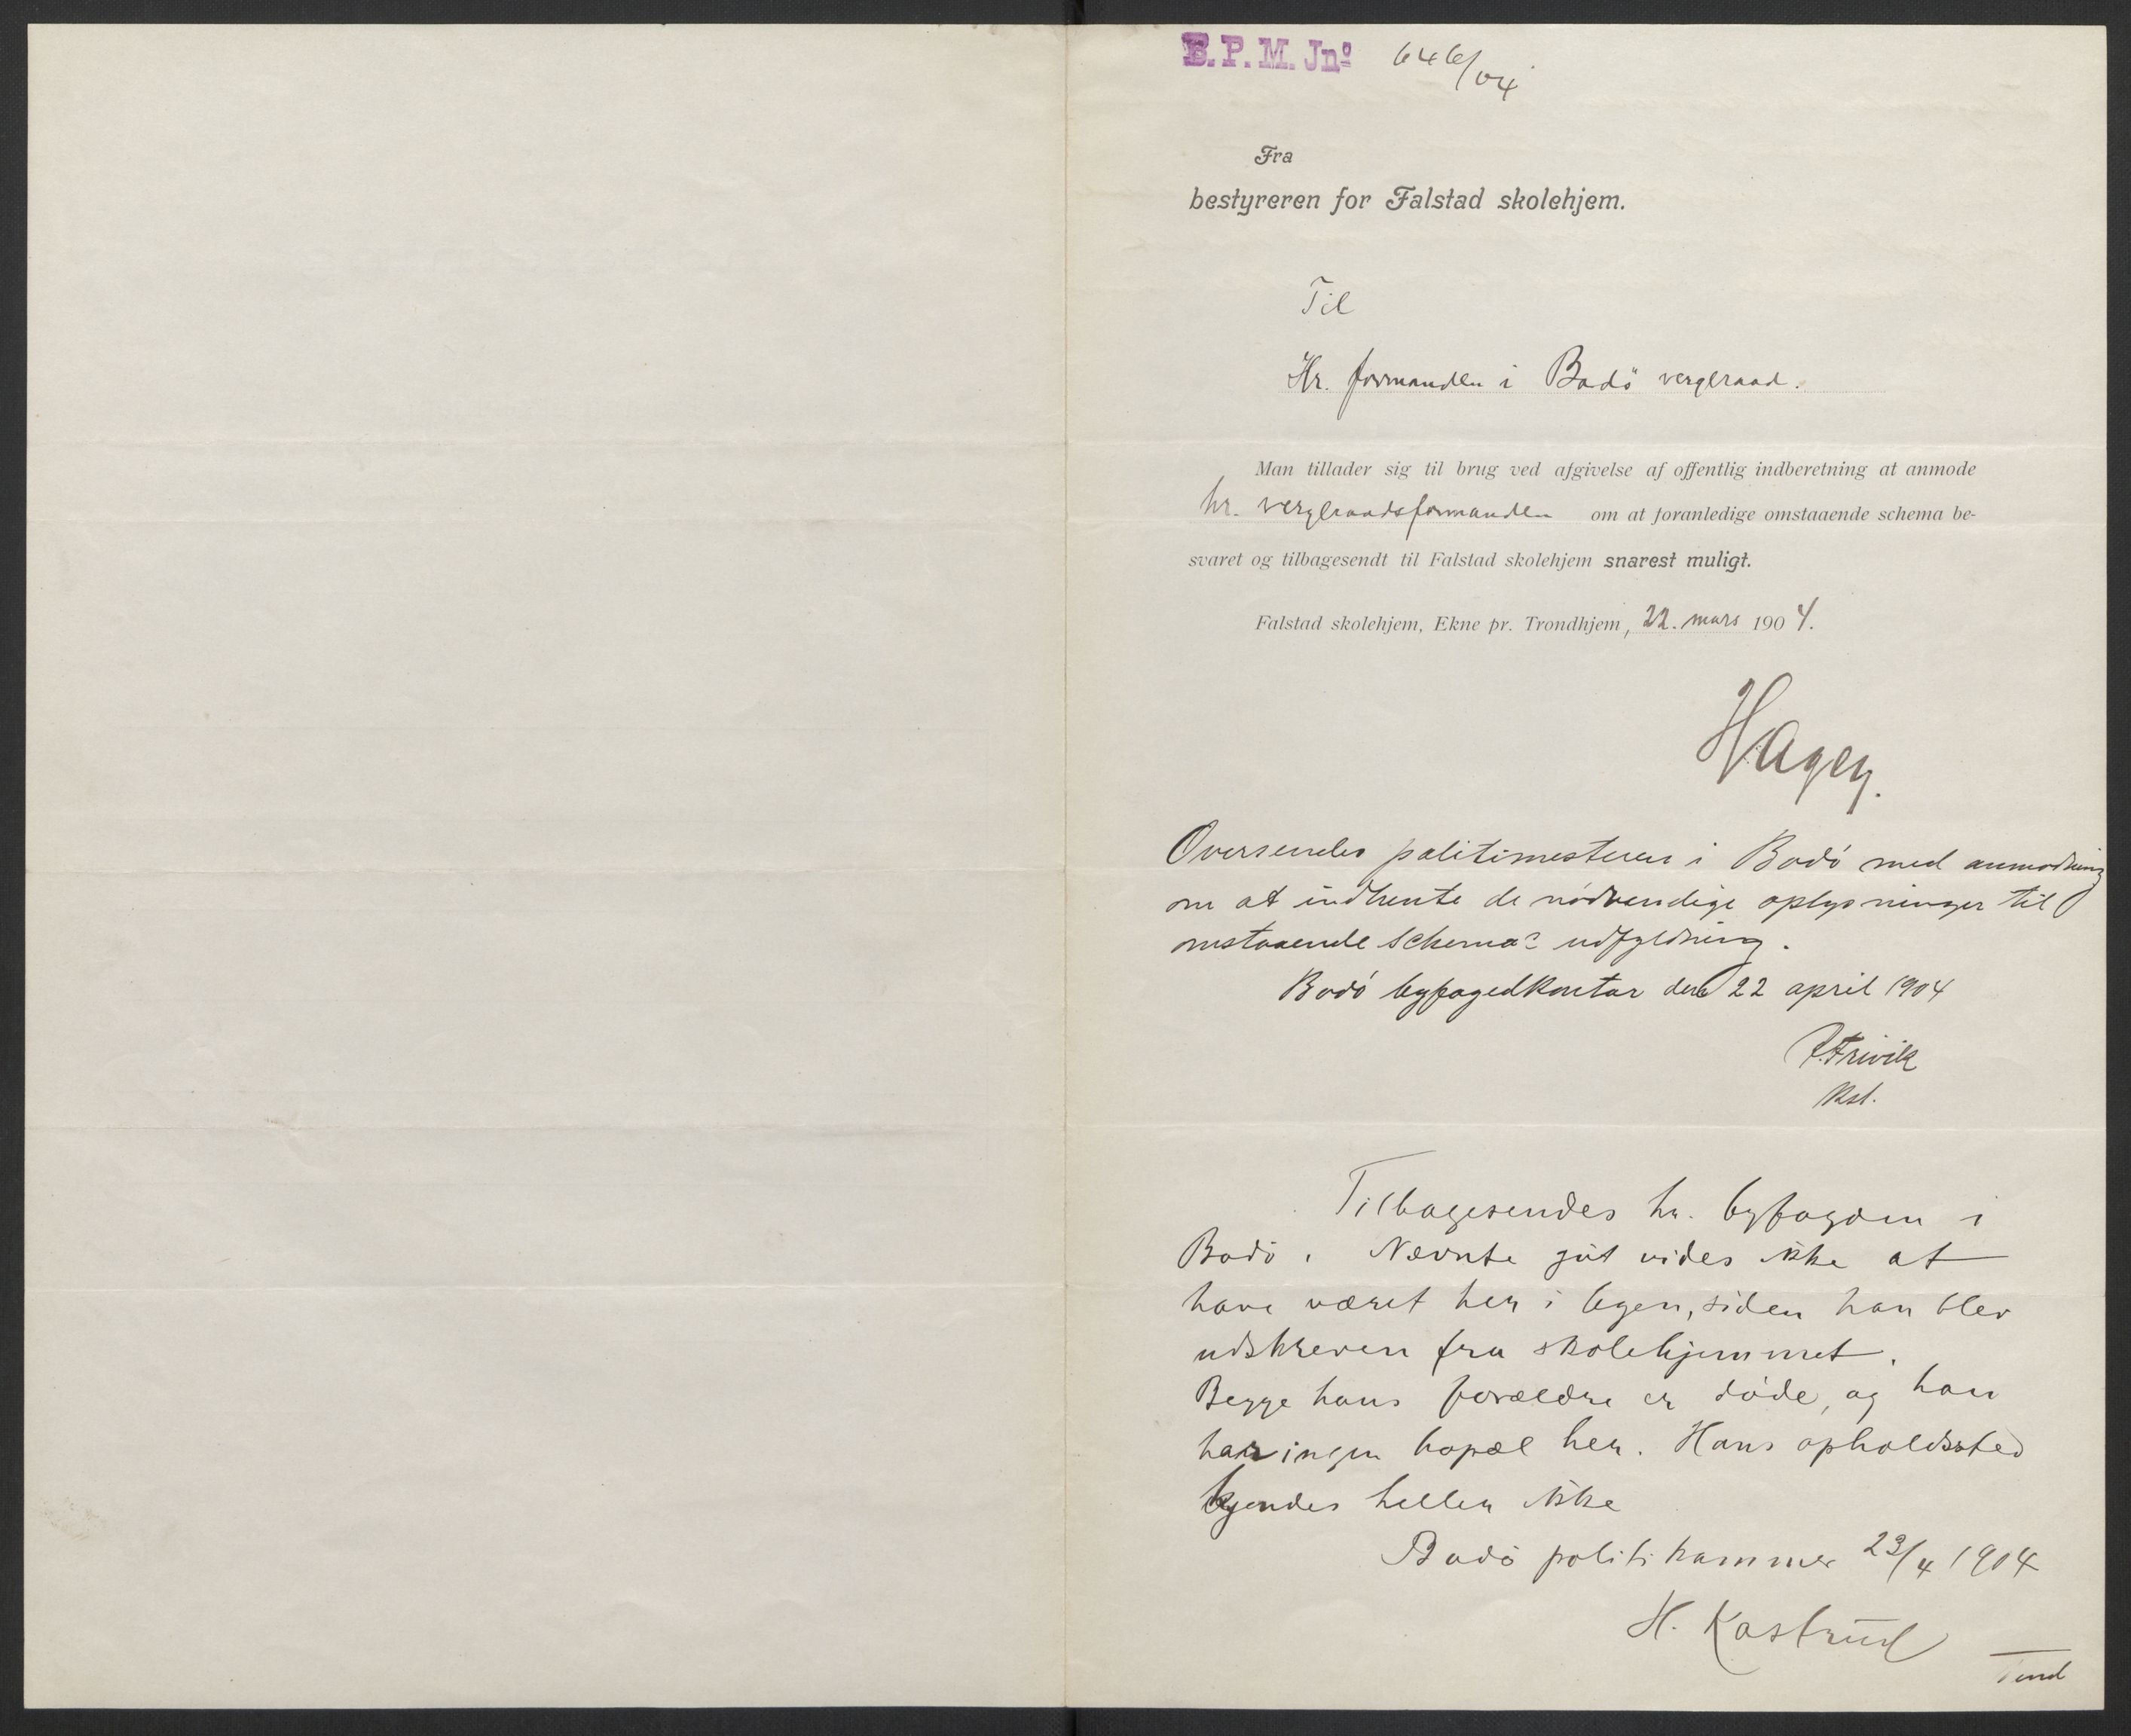 B.P.M. Jnº 646/04
Fra
bestyreren for Falstad skolehjem.
Til
Hr. formanden i Bodö vergeraad.
Man tillader sig til brug ved afgivelse af offentlig indberetning at anmode
hr. vergeraadsformanden om at foranledige omstaaende schema be-
svaret og tilbagesendt til Falstad skolehjem snarest muligt.
Falstad skolehjem, Ekne pr. Trondhjem, 22. mars 1904.
Hagen.
Oversendes politimesteren i Bodó med anmodning
om at indhente de nödvendige oplysninger til
omstaaende schemas udfyldning.
Bodó byfogedkontor den 22 april 1904
Kst.
Tilbagesendes hr. byfogden i
Bodö. Nævnte gut vides ikke at
have været her i byen, siden han blev
udskreven fra skolehjemmet.
Begge hans forældre er döde, og han
har ingen bopæl her. Hans opholdssted
kjendes heller ikke
Bodö politikammer 23/4 1904
H. Kastrud